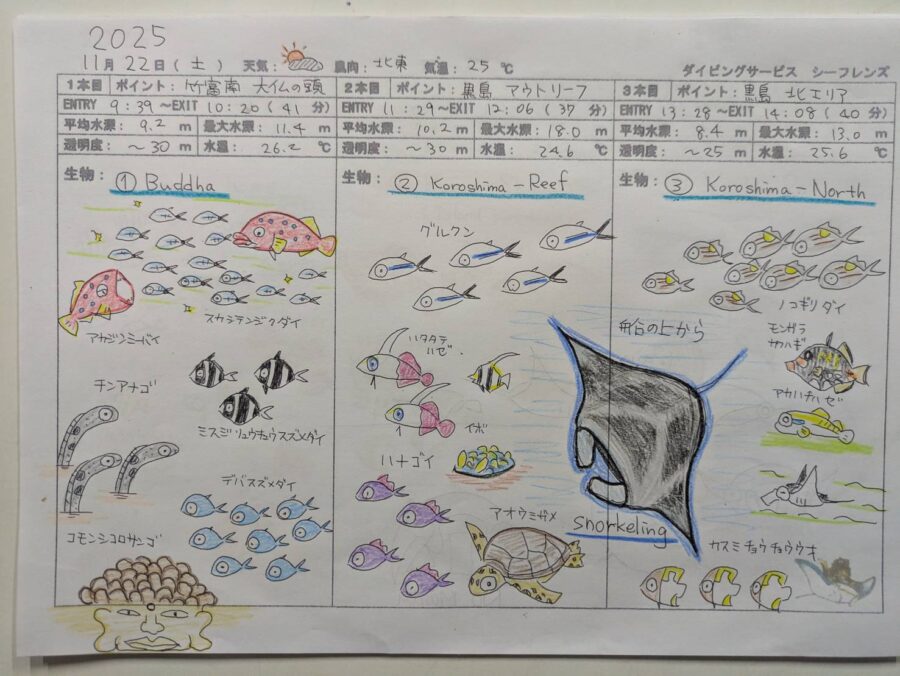 2025
11月 22日(土) 天気: 風向: 北東 気温: 25 ℃
ダイビングサービス シーフレンズ
1本目 ポイント: 竹富南 大仏の頭
ENTRY 9:39 ~EXIT 10:20 (41 分)
平均水深: 9.2 m 最大水深: 11.4 m
透明度: ~30 m 水温: 26.2 ℃
生物: ① Buddha
スカシテンジクダイ
アカジンミーバイ
チンアナゴ
ミスジリュウキュウスズメダイ
デバスズメダイ
コモンシコロサンゴ
2本目 ポイント: 黒島 アウトリーフ
ENTRY 11:29 ~EXIT 12:06 (37 分)
平均水深: 10.2 m 最大水深: 18.0 m
透明度: ~30 m 水温: 24.6 ℃
生物: ② Koroshima - Reef
グルクン
ハタタテ
ハゼ
イボ
ハナゴイ
アオウミガメ
3本目 ポイント: 黒島 北エリア
ENTRY 13:28 ~EXIT 14:08 (40 分)
平均水深: 8.4 m 最大水深: 13.0 m
透明度: ~25 m 水温: 25.6 ℃
生物: ③ Koroshima - North
ノコギリダイ
船の上から
モンガラ
カワハギ
アカハチハゼ
snorkeling
カスミチョウチョウウオ